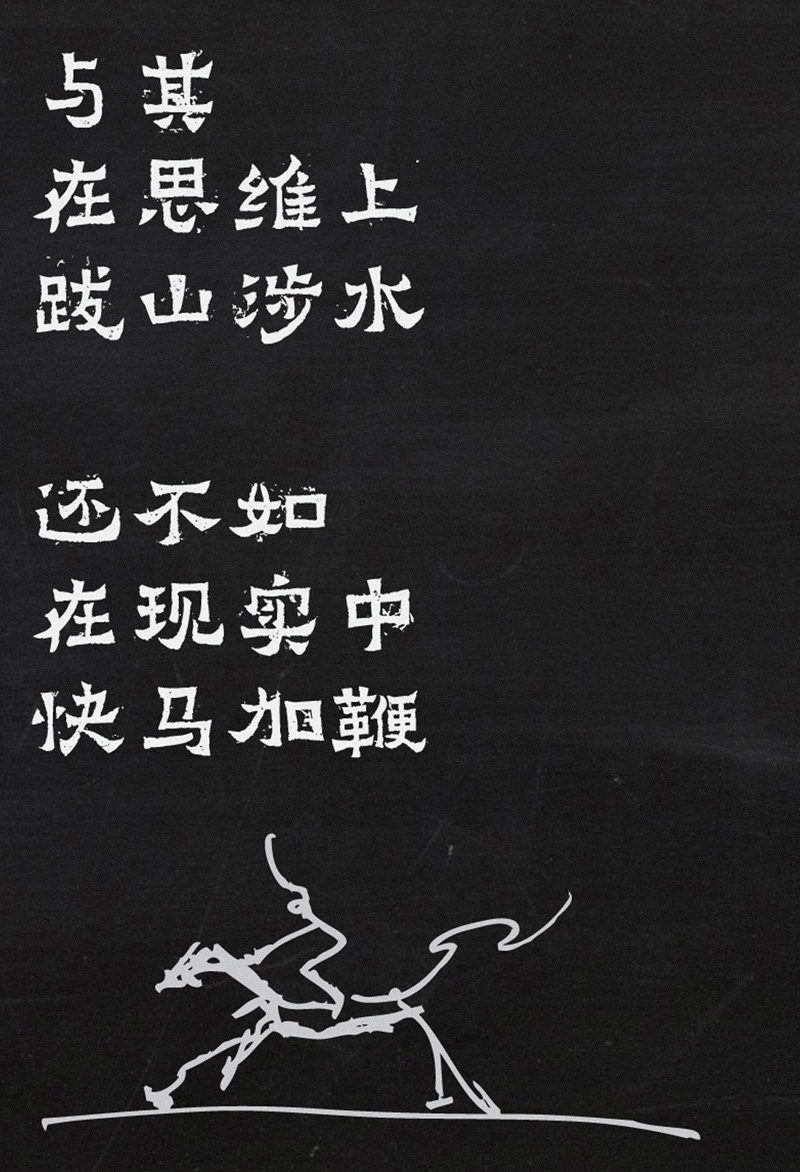 与其
在思维上
跋山涉水
还不如
在现实中
快马加鞭